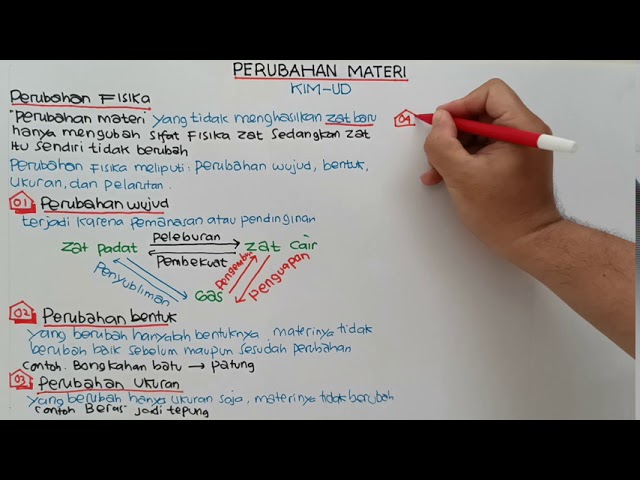 PERUBAHAN MATERI
KIM-UD
Perubahan FISIKA
"Perubahan materi yang tidak menghasilkan zat baru
hanya mengubah sifat Fisika zat sedangkan zat
itu sendiri tidak berubah
Perubahan Fisika meliputi: Perubahan wujud, bentuk,
Ukuran, dan pelarutan.
01 Perubahan wujud
terjadi karena pemanasan atau pendinginan
Peleburan
zat padat zat cair
Pembekuat
Penyubliman Penguapan
Gas
02 Perubahan bentuk
yang berubah hanyalah bentuknya, materinya tidak
berubah baik sebelum maupun sesudah perubahan
Contoh. Bongkahan batu → patung
03 Perubahan Ukuran
yang berubah hanya ukuran saja, materinya tidak berubah
Contoh Beras jadi tepung
04